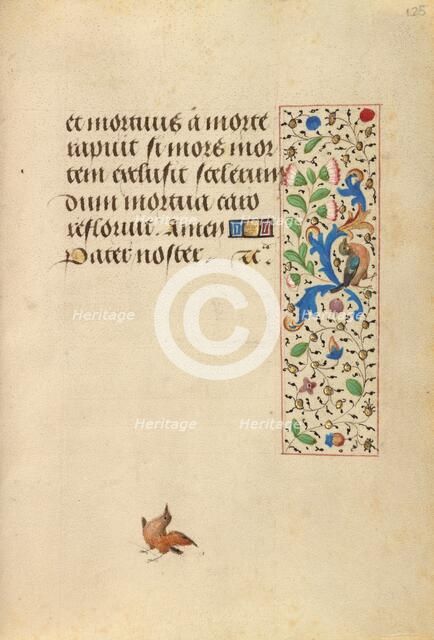 125
et mortuus a morte
rapuit si mors mor
tem exclusit scelerum
dum mortua caro
refloruit. Amen
Pater noster. xc.
Heritage Heritage Heritage
Heritage Heritage Heritage